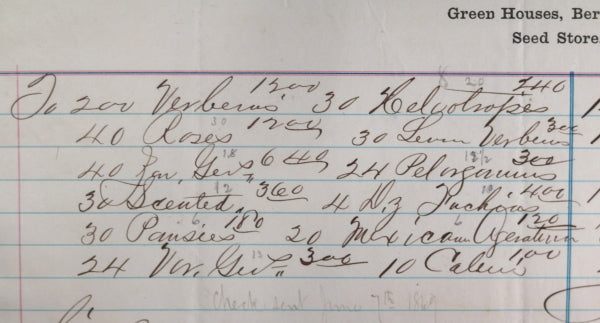 Green Houses, Ber
Seed Store
To 200 Verbenas 1200 30 Heliotropes 240
40 Roses 30 1200 30 Lemon Verbens 300
40 Zon. Ger's 18 640 24 Pelargoniums 12½ 300
30 Scented " 12 360 4 Dz Fuchsias 10 400
30 Pansies 6 180 20 Mexican Ageratum 6 120
24 Var. Ger's " 13 300 10 Coleus 1,00
Check sent June 7th 1869